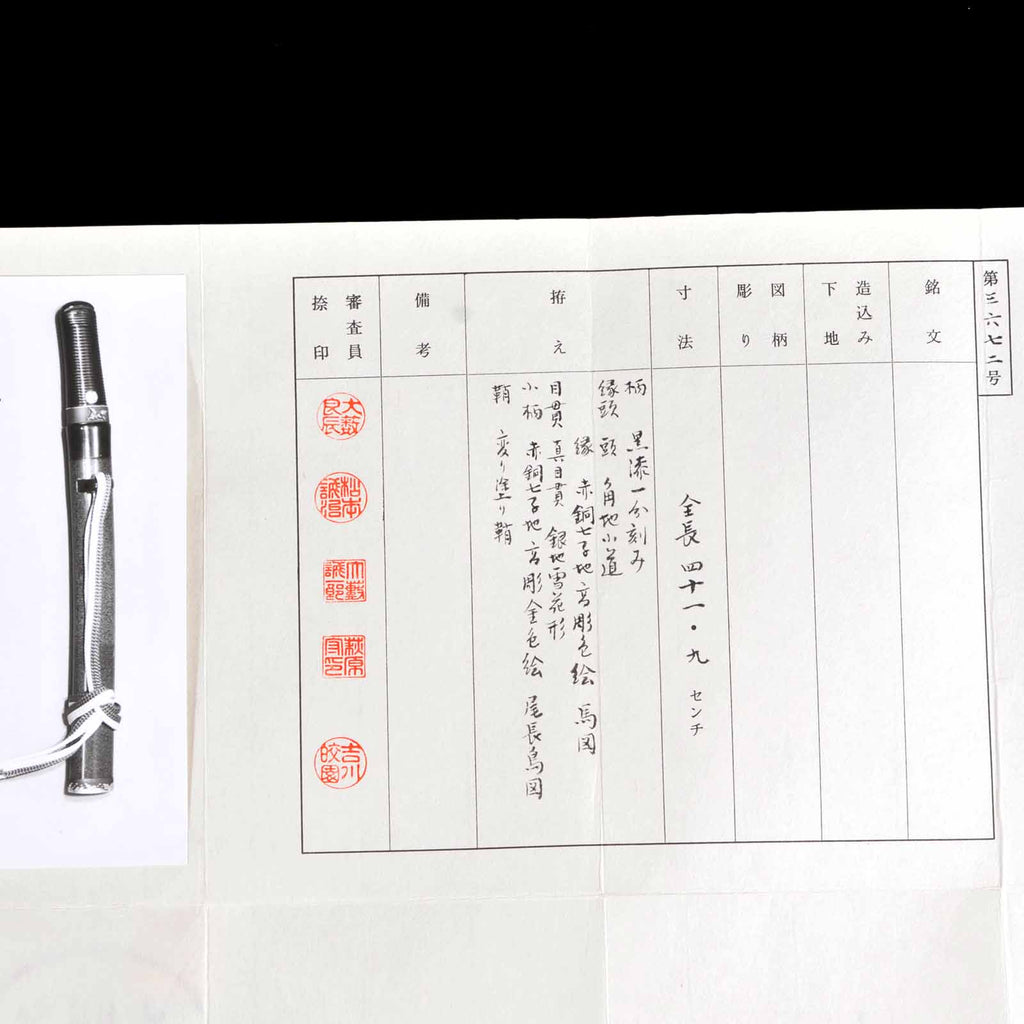 第三六七二号
銘文
造込み
下地
図柄
彫り
寸法
全長 四十一・九 センチ
拵え
柄 黒漆一分刻み
縁頭 頭 角地小道
縁 赤銅七子地高彫色絵 馬図
目貫 真目貫 銀地雪花形
小柄 赤銅七子地高彫金色絵 尾長鳥図
鞘 変り塗り鞘
備考
審査員
捺印
松本
萩原
吉川